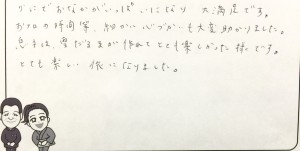 りにでおなかがいっぱいになり 大満足です。
お子の時間等、細かい心づかいも大変助かりました。
息子は、雪だるまが作れてとても楽しかった様です。
とても楽しい 旅になりました。